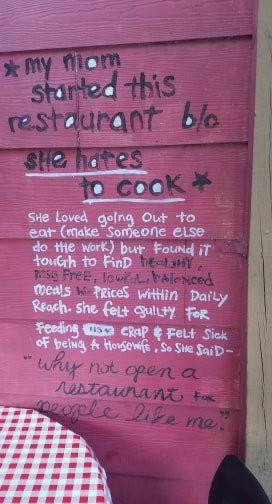 * my mom
started this
restaurant b/c
she hates
to cook *
SHE LOVED goiNg OUT to
eat (make someone else
do the work) but found it
tough to find healthy,
msg free, balanced
meals w PRiCES within Daily
Reach. she felt guilty FOR
Feeding CRAP & Felt Sick
of being A Housewife, So SHe SaiD-
"why not open a
restaurant FOR
people like me."